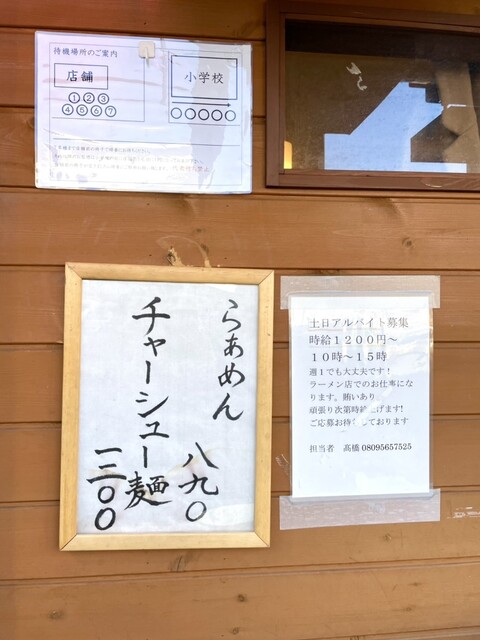 待機場所のご案内
店舗
①②③
④⑤⑥⑦
小学校
らぁめん 八九〇
チャーシュー麺 一三〇〇
土日アルバイト募集
時給1200円~
10時~15時
週1でも大丈夫です!
ラーメン店でのお仕事にな
ります。賄いあり
頑張り次第時給上げます!
ご応募お待ちしております
担当者 髙橋 08095657525